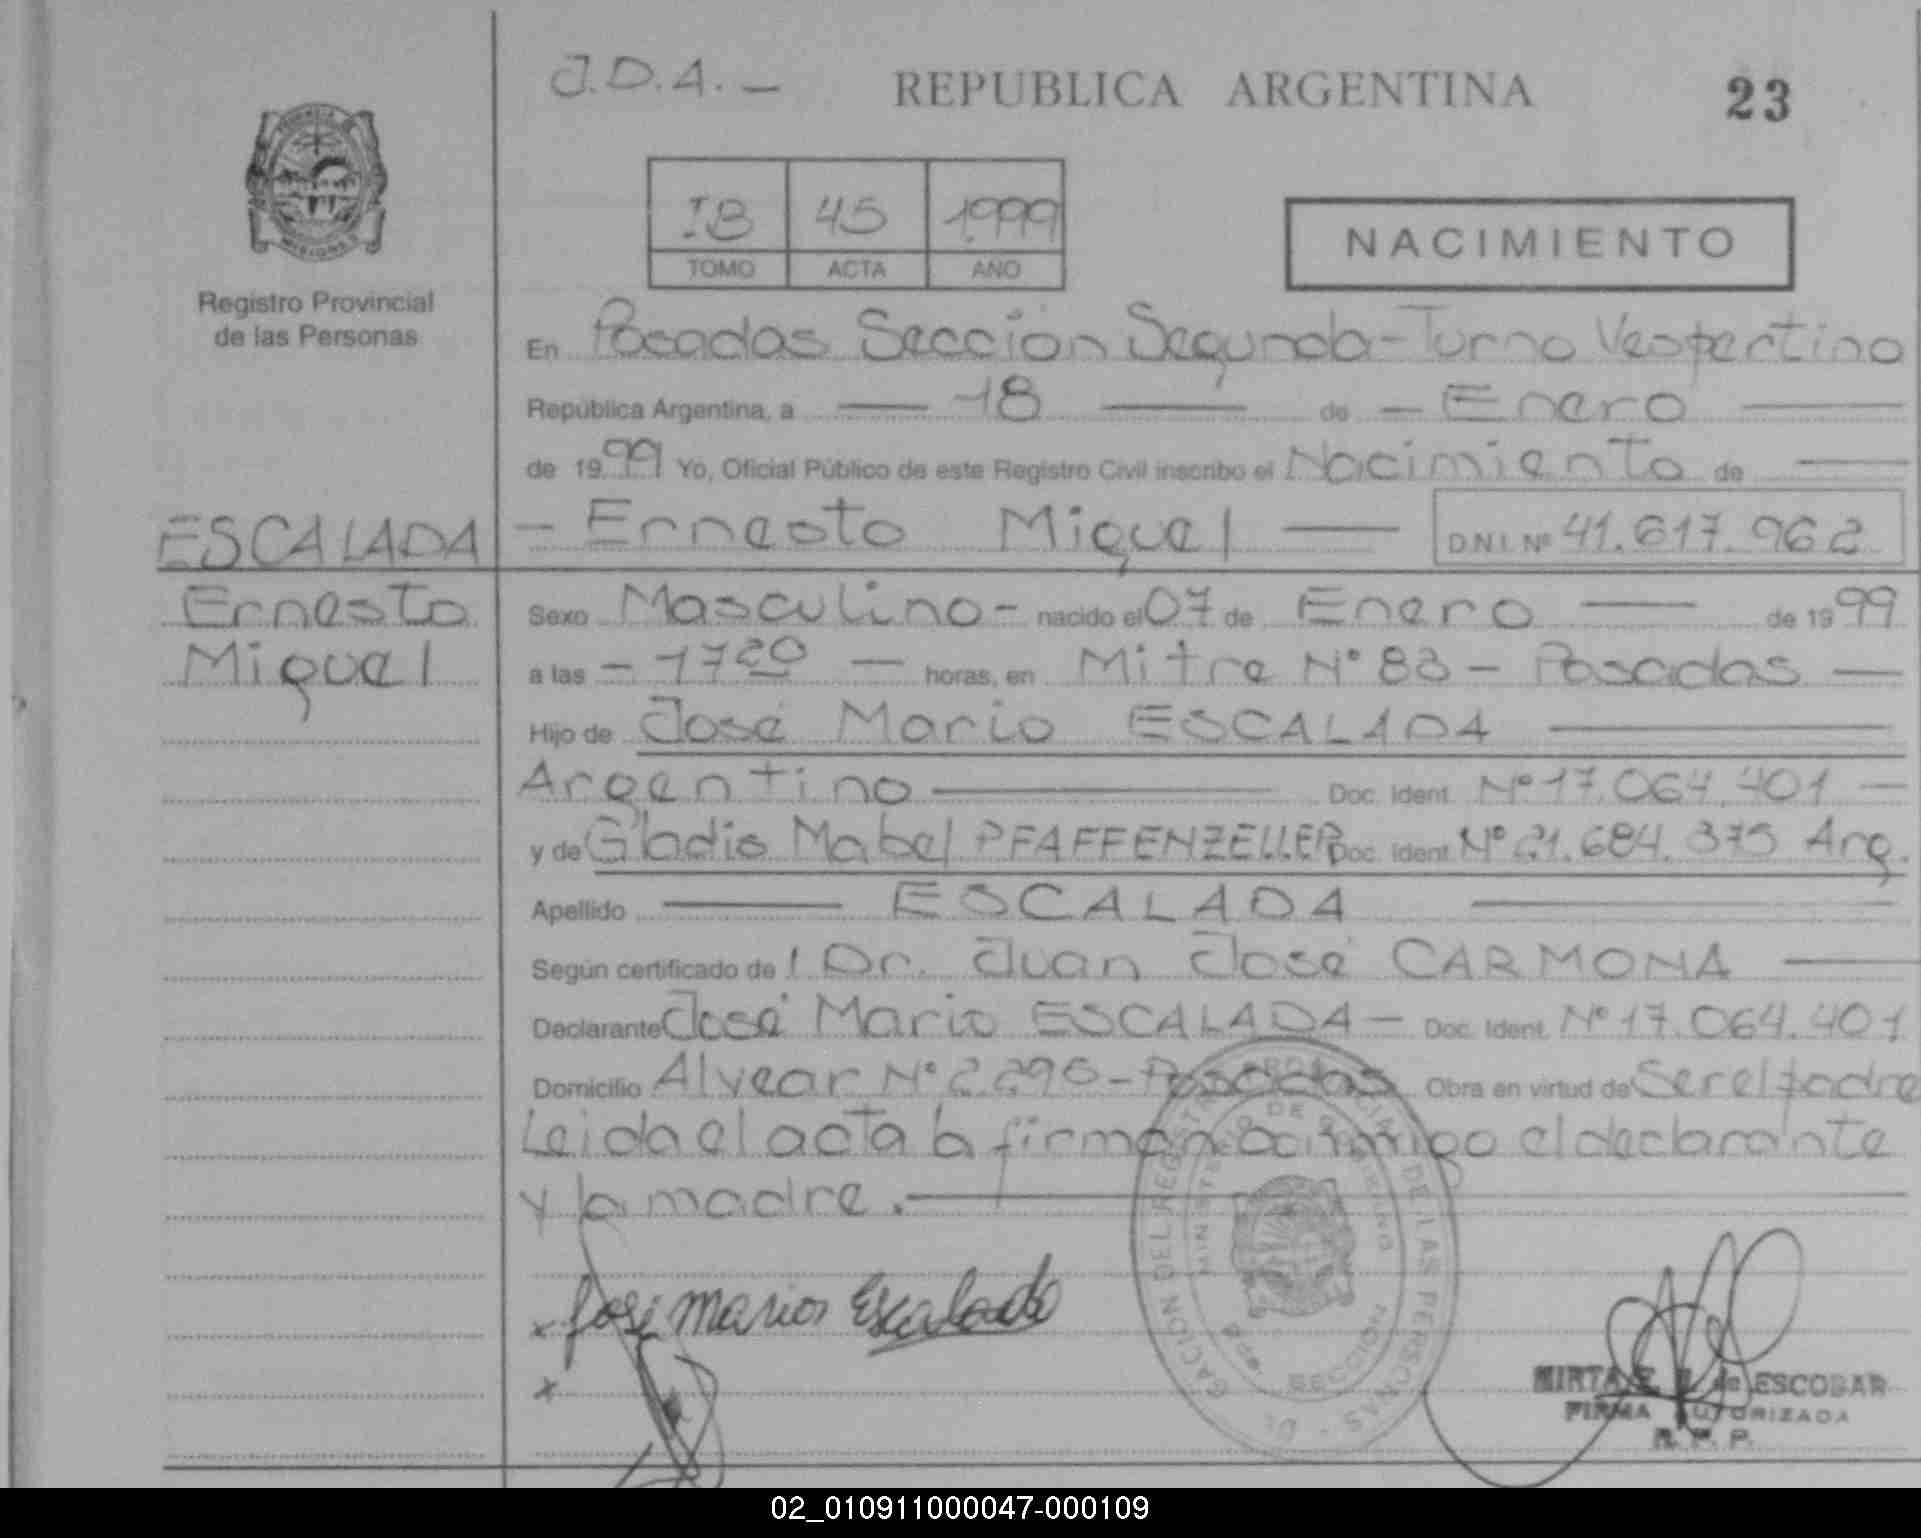 J.D.A.—
REPUBLICA ARGENTINA
23
IB 45 1.999
TOMO ACTA AÑO
NACIMIENTO
Registro Provincial
de las Personas
En Posadas Sección Segunda-Turno Vespertino
República Argentina, a — 18 — de — Enero —
de 1999 Yo, Oficial Público de este Registro Civil inscribo el Nacimiento de —
ESCALADA
Ernesto
Miguel
— Ernesto Miguel — D.N.I. Nº 41.617.962
Sexo Masculino - nacido el 07 de Enero — de 1999
a las — 1720 — horas, en Mitre Nº 83 - Posadas —
Hijo de José Mario ESCALADA —
Argentino — Doc. Ident. Nº 17.064.401 —
y de Gladis Mabel PFAFFENZELLER Doc. Ident. Nº 21.684.375 Arg.
Apellido — ESCALADA —
Según certificado de l Dr. Juan José CARMONA —
Declarante José Mario ESCALADA — Doc. Ident. Nº 17.064.401
Domicilio Alvear Nº 2290 - Posadas Obra en virtud de Ser el padre
Leida el acta la firman conmigo el declarante
y la madre. —
x José Mario Escalada
x
DELEGACION DEL REGISTRO PROVINCIAL DE LAS PERSONAS
MINISTERIO DE GOBIERNO
SECCION
MIRTA E. de ESCOBAR
FIRMA AUTORIZADA
R. P. P.
02_010911000047-000109